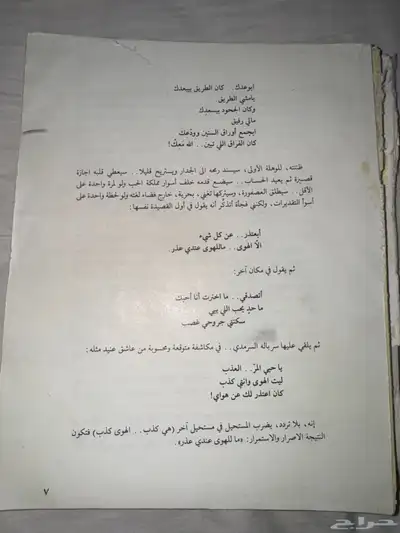 أبوعدك.. كان الطريق يبعدك
بامشي الطريق
وكان الجحود يسعدك
مالي رفيق
بجمع أوراق السنين وودعك
كان الفراق اللي تبين.. الله معك!
ظننته، للوهلة الأولى، سيسند رمحه الى الجدار ويستريح قليلا.. سيعطي قلبه اجازة
قصيرة ثم يعيد الحساب.. سيضع قدمه خلف أسوار مملكة الحب ولو لمرة واحدة على
الأقل.. سيطلق العصفورة، وسيتركها تغني، بحرية، خارج فضاء لغته ولو لحظة واحدة على
أسوأ التقديرات، ولكنني فجأة أتذكّر أنه يقول في أول القصيدة نفسها:
أبعتذر.. عن كل شيء
الاّ الهوى.. ماللهوى عندي عذر
ثم يقول في مكان آخر:
أتصدقي.. ما اخترت أنا أحبك
ما حدٍ يحب اللي يبي
سكنتي جروحي غصب
ثم يلقي عليها سرباله السرمدي.. في مكاشفة متوقعة ومحسوبة من عاشق عنيد مثله:
يا حبي المرّ.. العذب
ليت الهوى وانتي كذب
كان اعتذر لك عن هواي!
إنه، بلا تردد، يضرب المستحيل في مستحيل آخر (هي كذب.. الهوى كذب) فتكون
النتيجة الاصرار والاستمرار: «ما للهوى عندي عذر».
٧
حراج